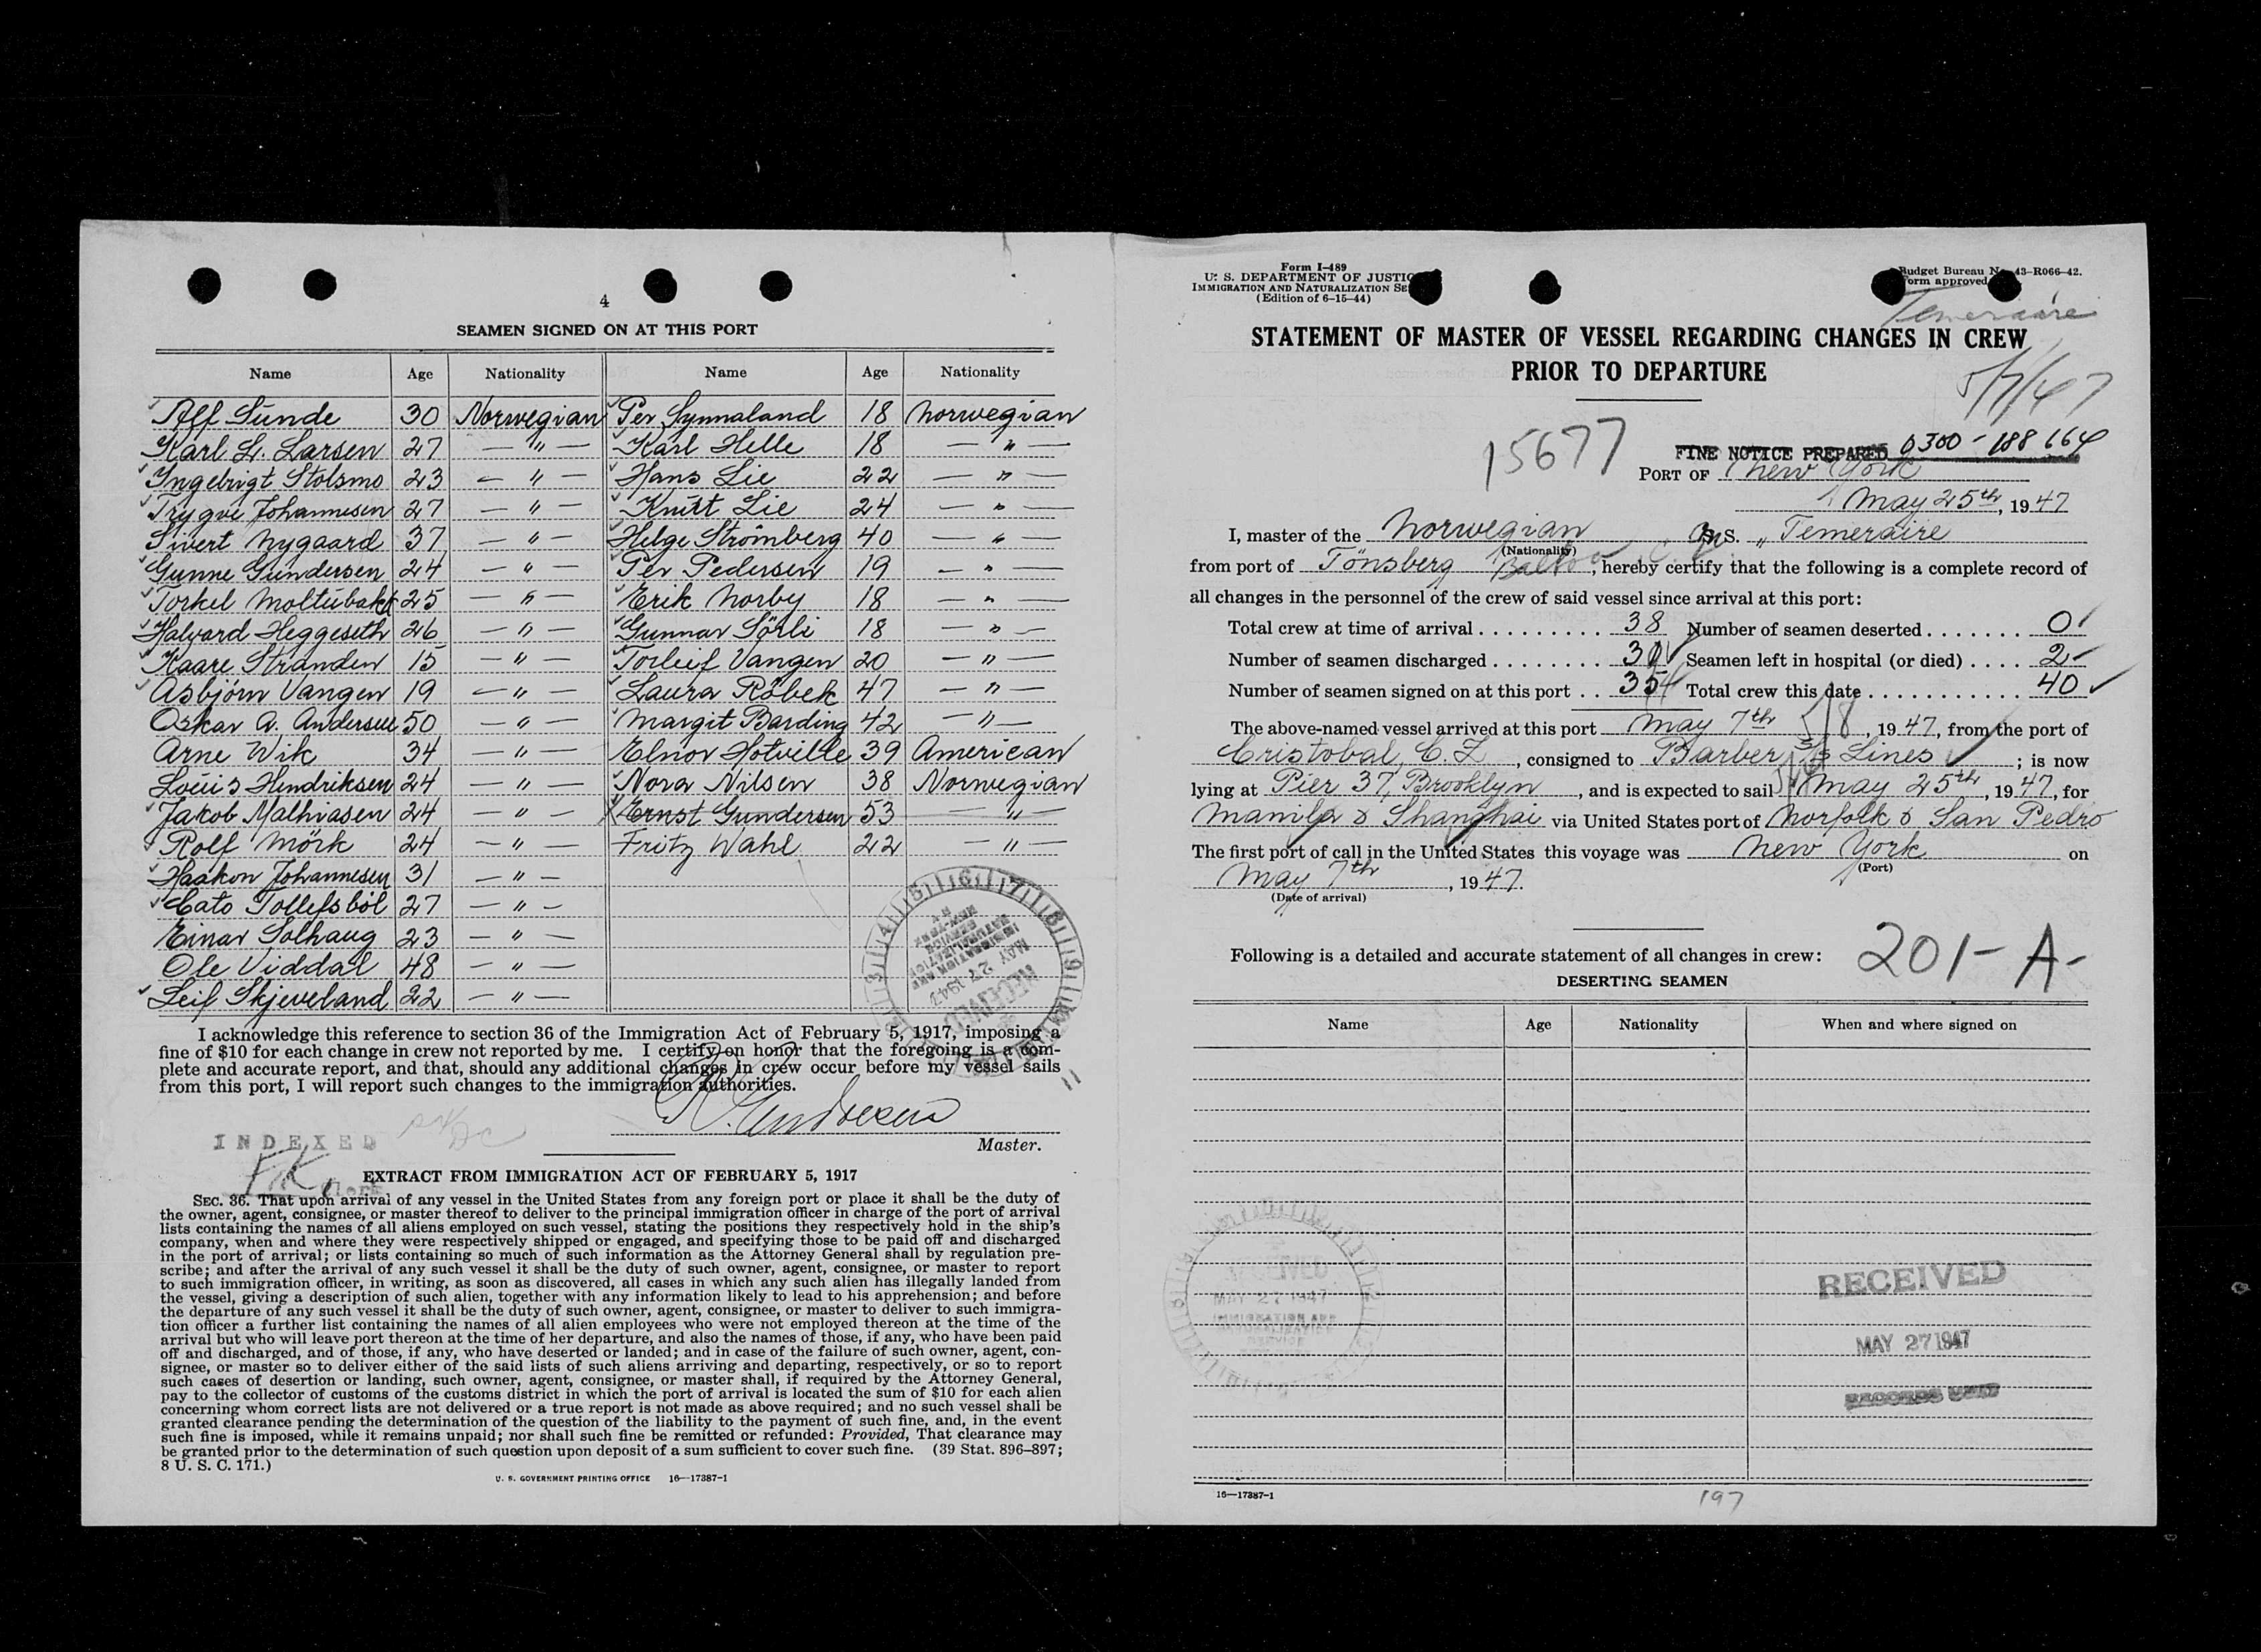 4
SEAMEN SIGNED ON AT THIS PORT
Name Age Nationality Name Age Nationality
Alf Sunde 30 Norwegian Per Synnaland 18 Norwegian
Karl L. Larsen 27 — " — Karl Helle 18 — " —
Ingebrigt Stolsmo 23 — " — Hans Lie 22 — " —
Trygve Johannesen 27 — " — Knut Lie 24 — " —
Sivert Nygaard 37 — " — Helge Strömberg 40 — " —
Gunne Gundersen 24 — " — Per Pedersen 19 — " —
Torkel Moltubakk 25 — " — Erik Norby 18 — " —
Halvard Heggeseth 26 — " — Gunnar Sörli 18 — " —
Kaare Stranden 15 — " — Torleif Vangen 20 — " —
Asbjörn Vangen 19 — " — Laura Röbek 47 — " —
Oskar A. Andersen 50 — " — Margit Barding 42 — " —
Arne Wik 34 — " — Elnor Hotville 39 American
Louis Hendriksen 24 — " — Nora Nilsen 38 Norwegian
Jakob Mathiasen 24 — " — Ernst Gundersen 53 — " —
Rolf Mörk 24 — " — Fritz Wahl 22 — " —
Haakon Johannesen 31 — " —
Cato Tollefsböl 27 — " —
Einar Solhaug 23 — " —
Ole Viddal 48 — " —
Leif Skjeveland 22 — " —
RECEIVED
MAY 27 1947
IMMIGRATION AND
NATURALIZATION
SERVICE
N.Y.
I acknowledge this reference to section 36 of the Immigration Act of February 5, 1917, imposing a
fine of $10 for each change in crew not reported by me. I certify on honor that the foregoing is a com-
plete and accurate report, and that, should any additional changes in crew occur before my vessel sails
from this port, I will report such changes to the immigration authorities.
Master.
INDEXED
EXTRACT FROM IMMIGRATION ACT OF FEBRUARY 5, 1917
SEC. 36. That upon arrival of any vessel in the United States from any foreign port or place it shall be the duty of
the owner, agent, consignee, or master thereof to deliver to the principal immigration officer in charge of the port of arrival
lists containing the names of all aliens employed on such vessel, stating the positions they respectively hold in the ship's
company, when and where they were respectively shipped or engaged, and specifying those to be paid off and discharged
in the port of arrival; or lists containing so much of such information as the Attorney General shall by regulation pre-
scribe; and after the arrival of any such vessel it shall be the duty of such owner, agent, consignee, or master to report
to such immigration officer, in writing, as soon as discovered, all cases in which any such alien has illegally landed from
the vessel, giving a description of such alien, together with any information likely to lead to his apprehension; and before
the departure of any such vessel it shall be the duty of such owner, agent, consignee, or master to deliver to such immigra-
tion officer a further list containing the names of all alien employees who were not employed thereon at the time of the
arrival but who will leave port thereon at the time of her departure, and also the names of those, if any, who have been paid
off and discharged, and of those, if any, who have deserted or landed; and in case of the failure of such owner, agent, con-
signee, or master so to deliver either of the said lists of such aliens arriving and departing, respectively, or so to report
such cases of desertion or landing, such owner, agent, consignee, or master shall, if required by the Attorney General,
pay to the collector of customs of the customs district in which the port of arrival is located the sum of $10 for each alien
concerning whom correct lists are not delivered or a true report is not made as above required; and no such vessel shall be
granted clearance pending the determination of the question of the liability to the payment of such fine, and, in the event
such fine is imposed, while it remains unpaid; nor shall such fine be remitted or refunded: Provided, That clearance may
be granted prior to the determination of such question upon deposit of a sum sufficient to cover such fine. (39 Stat. 896–897;
8 U. S. C. 171.)
U. S. GOVERNMENT PRINTING OFFICE 16—17387-1
Form I-489
U. S. DEPARTMENT OF JUSTIC
IMMIGRATION AND NATURALIZATION SE
(Edition of 6-15-44)
Budget Bureau N 43-R066-42.
orm approved
Temeraire
STATEMENT OF MASTER OF VESSEL REGARDING CHANGES IN CREW
PRIOR TO DEPARTURE
5/7/47
15677
FINE NOTICE PREPARED 0300-188664
PORT OF New York
May 25th, 1947
I, master of the Norwegian M.S. „Temeraire
(Nationality)
from port of Tönsberg, hereby certify that the following is a complete record of
all changes in the personnel of the crew of said vessel since arrival at this port:
Total crew at time of arrival 38 Number of seamen deserted 0
Number of seamen discharged 30 Seamen left in hospital (or died) 2
Number of seamen signed on at this port 34 Total crew this date 40
The above-named vessel arrived at this port May 7th 5/8, 1947, from the port of
Cristobal, C.Z., consigned to Barber Lines; is now
lying at Pier 37, Brooklyn, and is expected to sail May 25th, 1947, for
Manila & Shanghai via United States port of Norfolk & San Pedro
The first port of call in the United States this voyage was New York on
(Port)
May 7th, 1947.
(Date of arrival)
Following is a detailed and accurate statement of all changes in crew:
201-A-
DESERTING SEAMEN
Name Age Nationality When and where signed on
RECEIVED
MAY 27 1947
IMMIGRATION AND
NATURALIZATION
SERVICE
RECEIVED
MAY 27 1947
RECORDS UNIT
16—17387-1
197